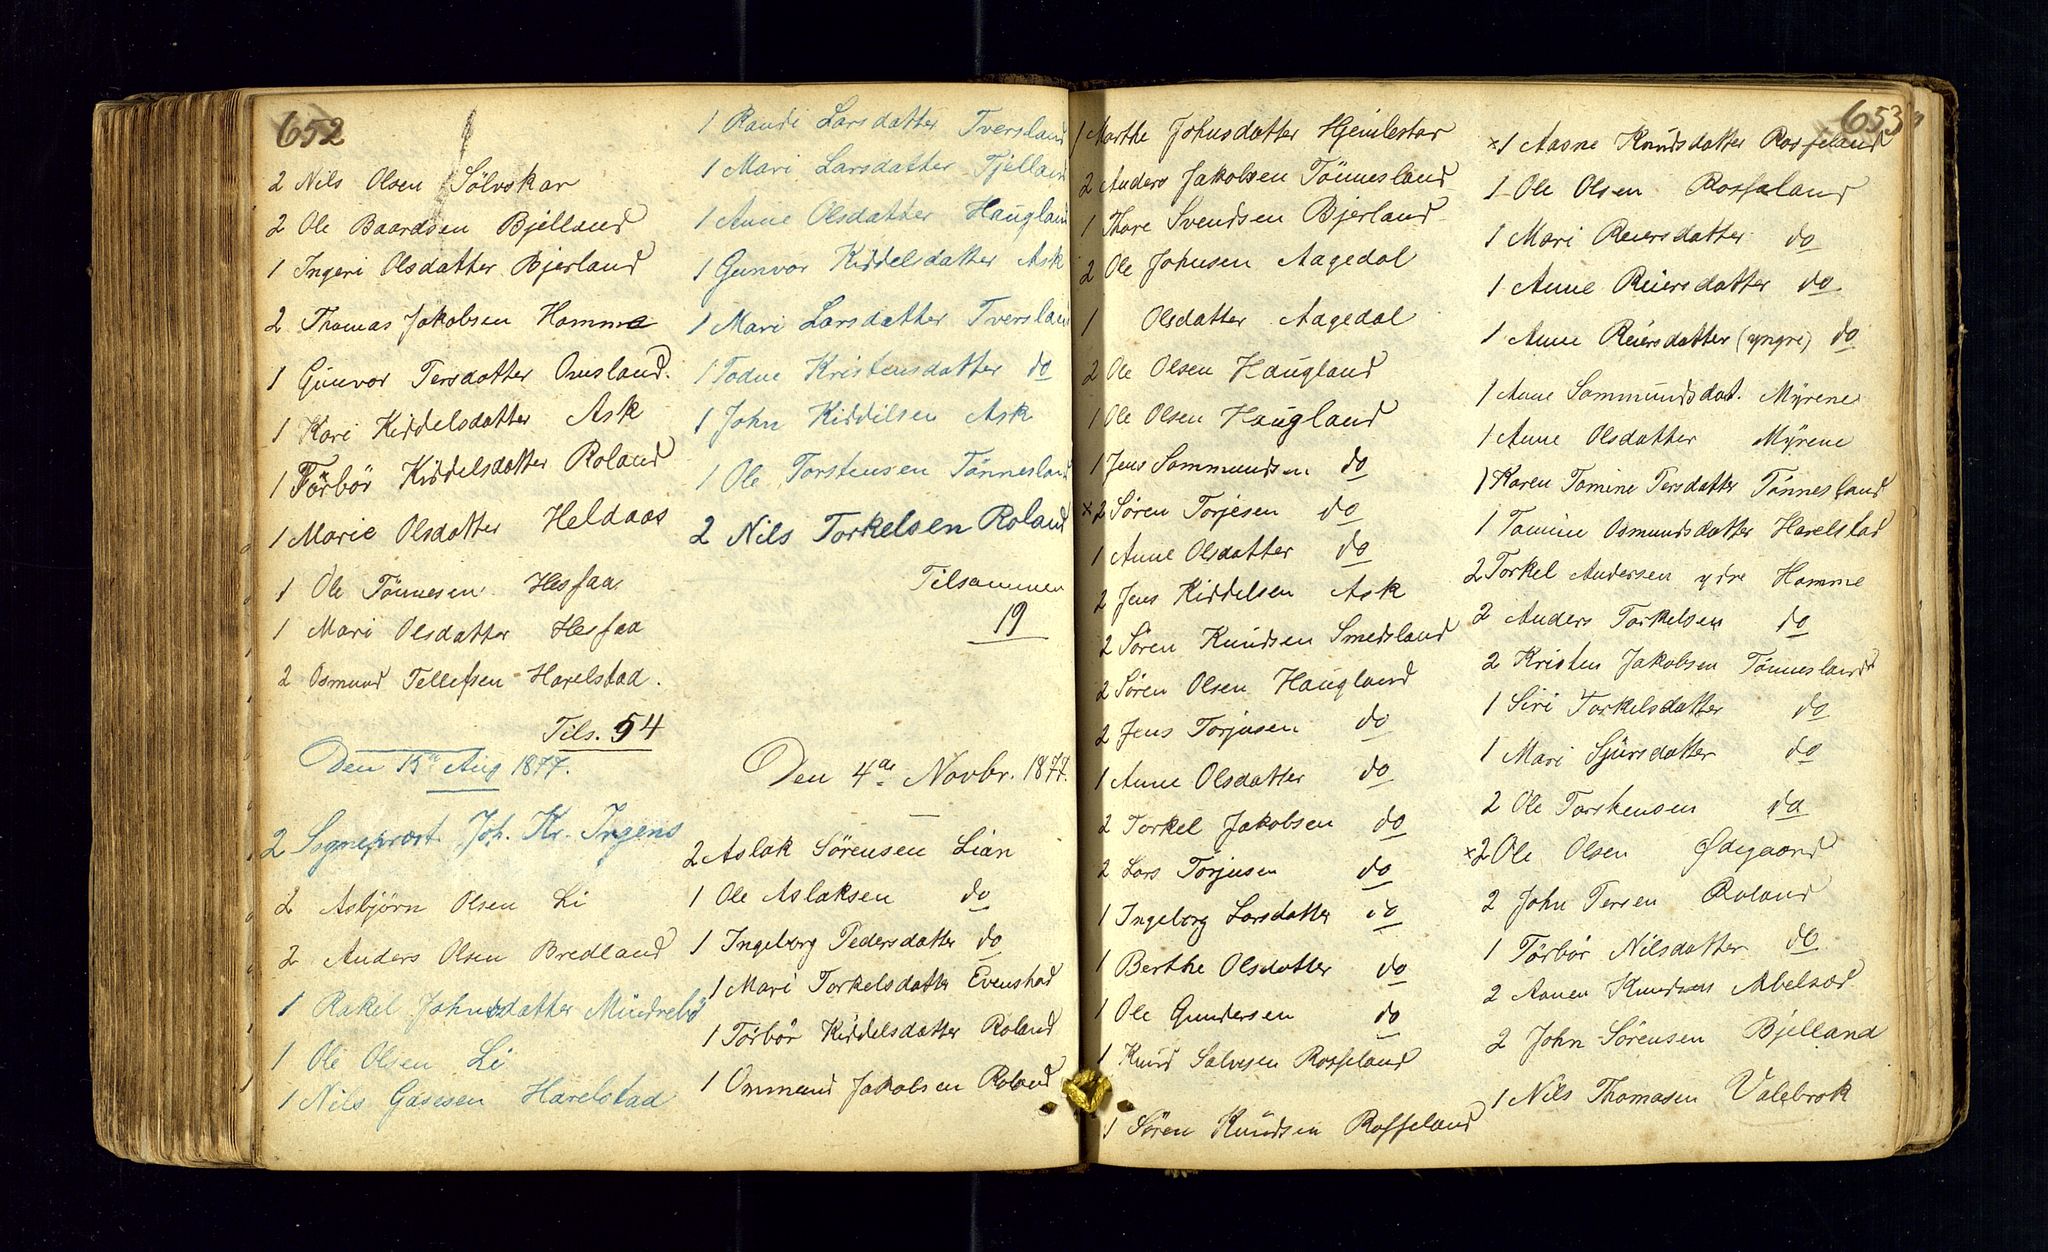 652
2 Nils Olsen Sölvskar
2 Ole Baardsen Bjelland
1 Ingeri Olsdatter Bjerland
2 Thomas Jakobsen Homme
1 Gunvor Tersdatter Omsland.
1 Kari Kiddelsdatter Ask
1 Törbör Kiddelsdatter Roland
1 Marie Olsdatter Heldaas
1 Ole Tönnesen Hesfaa
1 Mari Olsdatter Hesfaa
2 Osmund Tellefsen Harelstad.
Tils. 54
Den 15de Aug 1877.
2 Sognepræst Joh. Kr. Ingens
2 Asbjörn Olsen Li
2 Anders Olsen Bredland
1 Rakel Johnsdatter Mindrebö
1 Ole Olsen Li
1 Nils Gasesen Harelstad
1 Randi Larsdatter Tversland
1 Mari Larsdatter Tjelland
1 Anne Olsdatter Haugland
1 Gunvor Kiddelsdatter Ask
1 Mari Larsdatter Tversland
1 Todne Kristensdatter do
1 John Kiddilsen Ask
1 Ole Torstensen Tönnesland
2 Nils Torkelsen Roland
Tilsammen
19
Den 4de Novbr. 1877.
2 Aslak Sörensen Lian
1 Ole Aslaksen do
1 Ingeborg Pedersdatter do
1 Mari Torkelsdatter Evenstad
1 Törbör Kiddelsdatter Roland
1 Ommund Jakobsen Roland
653
1 Marthe Johnsdatter Hjemlestar
2 Anders Jakobsen Tönnesland
1 Thore Svendsen Bjerland
2 Ole Johnsen Aagedal
1 Olsdatter Aagedal
2 Ole Olsen Haugland
1 Ole Olsen Haugland
1 Jens Sommundsen do
x 2 Sören Torjesen do
1 Anne Olsdatter do
2 Jens Kiddelsen Ask
2 Sören Knudsen Smedsland
2 Sören Olsen Haugland
2 Jens Torjusen do
1 Anne Olsdatter do
2 Torkel Jakobsen do
2 Lars Torjusen do
1 Ingeborg Larsdatter do
1 Berthe Olsdatter do
1 Ole Gundersen do
1 Knud Salvesen Rosseland
1 Sören Knudsen Rosseland
x 1 Aasne Knudsdatter Rosseland
1 Ole Olsen Rosseland
1 Mari Reiersdatter do
1 Anne Reiersdatter do
1 Anne Reiersdatter (yngre) do
1 Anne Sommundsdat. Myrene
1 Anne Olsdatter Myrene
1 Karen Tomine Tersdatter Tönnesland
1 Tomine Osmundsdatter Harelstad
2 Torkel Andersen ydre Homme
2 Anders Torkelsen do
2 Kristen Jakobsen Tönnesland
1 Siri Torkelsdatter do
1 Mari Sjursdatter do
2 Ole Torstensen do
x 2 Ole Olsen Ødegaard
2 John Tersen Roland
1 Törbör Nilsdatter do
2 Aanen Knudsen Abelsæd
2 John Sörensen Bjelland
1 Nils Thomasen Valebrok